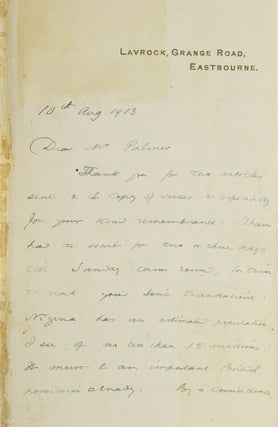 LAVROCK, GRANGE ROAD,
EASTBOURNE.
10th Aug. 1913.
Dear Mr Palmer
Thank you for two articles
sent & the copy of verses & especially
for your kind remembrance. I have
had to wait for two or three days
till Sunday came round, for time
to read your son's translations.
Nigeria has an estimated population,
I see, of no less than 15 millions.
It must be an important British
possession already. By a